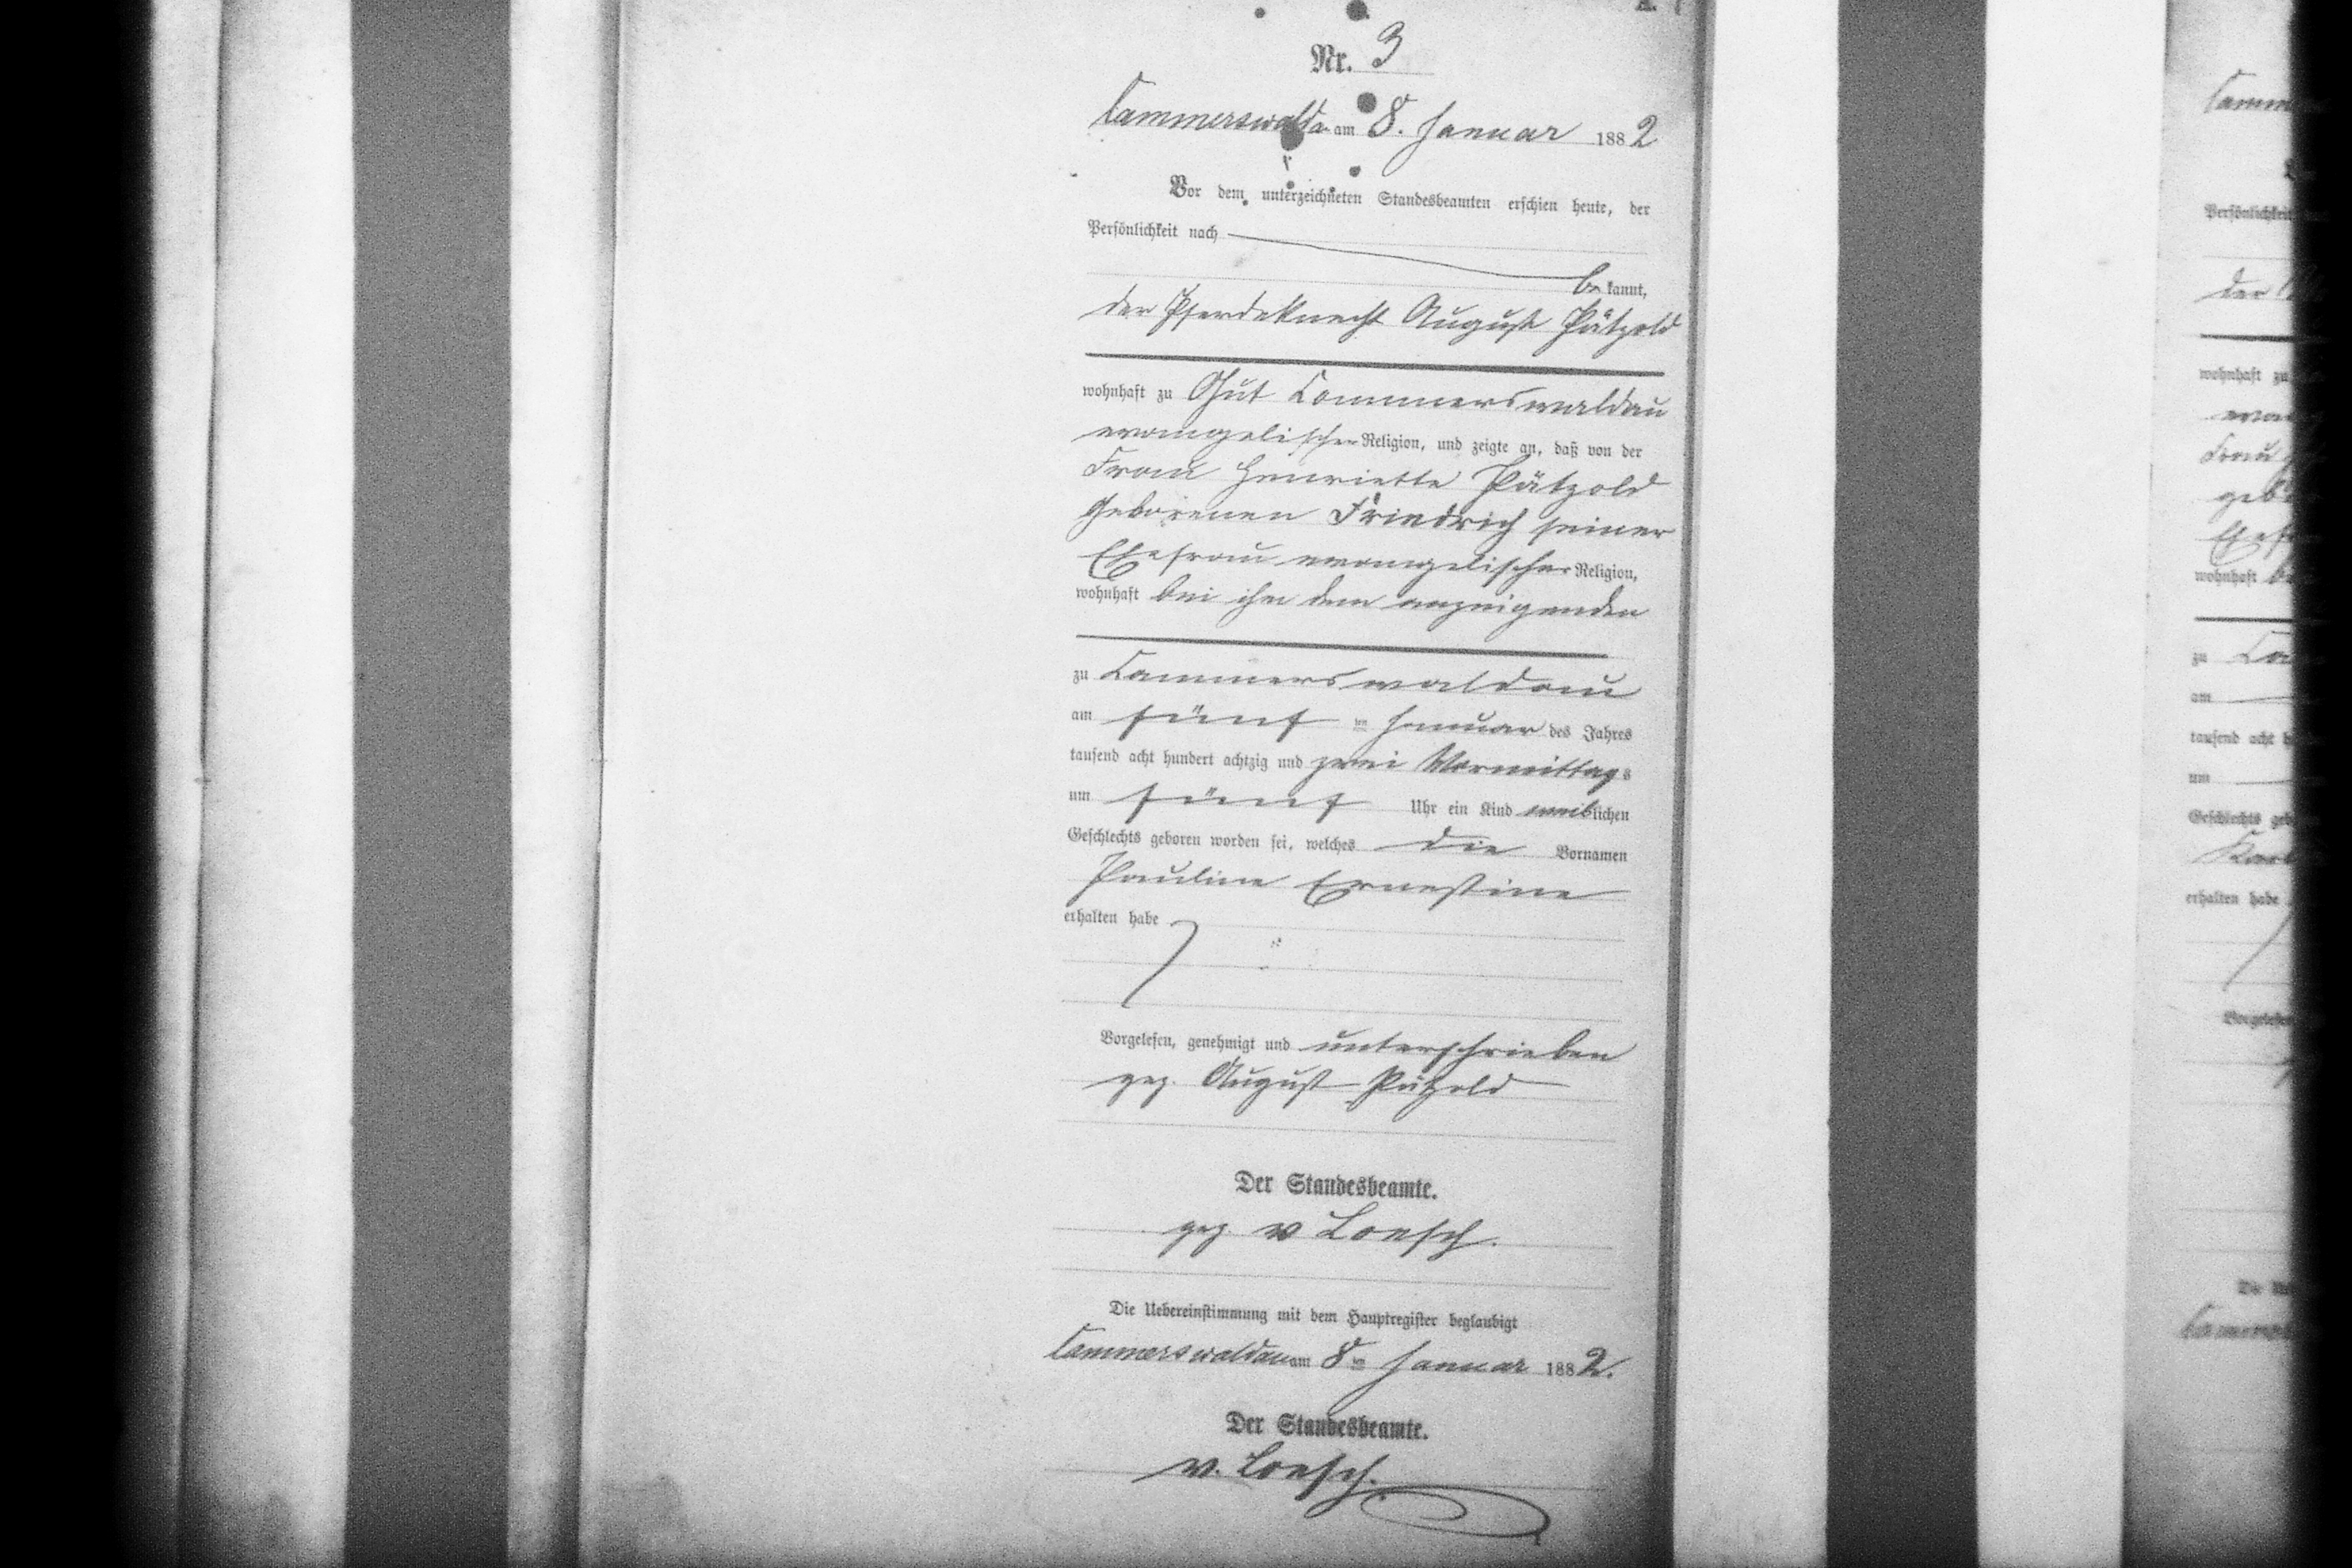 A.
Nr. 3
Cammerswaldau am 8. Januar 1882
Vor dem unterzeichneten Standesbeamten erschien heute, der
Persönlichkeit nach
be kannt,
der Pferdeknecht August Pätzold
wohnhaft zu Gut Cammerswaldau
evangelischer Religion, und zeigte an, daß von der
Frau Henriette Pätzold
geborenen Friedrich seiner
Ehefrau evangelischer Religion,
wohnhaft bei ihm dem anzeigenden
zu Cammerswaldau
am fünf ten Januar des Jahres
tausend acht hundert achtzig und zwei Vormittags
um fünf Uhr ein Kind weiblichen
Geschlechts geboren worden sei, welches die Vornamen
Pauline Ernestine
erhalten habe
Vorgelesen, genehmigt und unterschrieben
gez. August Pätzold
Der Standesbeamte.
gez v Loesch.
Die Uebereinstimmung mit dem Hauptregister beglaubigt
Cammerswaldau am 8ten Januar 1882.
Der Standesbeamte.
v. Loesch.
Persönlichkeit
der
wohnhaft zu
wohnhaft
zu
am
tausend acht
um
Geschlechts
erhalten habe
Die